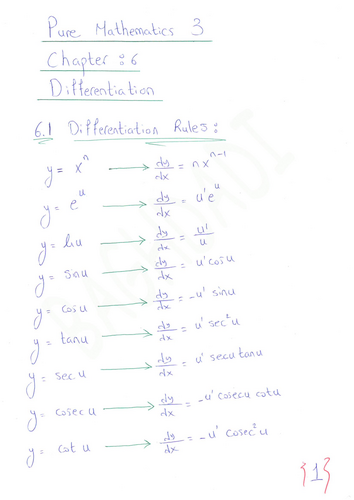 Pure Mathematics 3
Chapter : 6
Differentiation
6.1 Differentiation Rules :
y = xⁿ → dy/dx = n xⁿ⁻¹
y = eᵘ → dy/dx = u' eᵘ
y = ln u → dy/dx = u'/u
y = sin u → dy/dx = u' cos u
y = cos u → dy/dx = -u' sin u
y = tan u → dy/dx = u' sec² u
y = sec. u → dy/dx = u' sec u tan u
y = cosec u → dy/dx = -u' cosec u cot u
y = cot u → dy/dx = -u' cosec² u
{1}